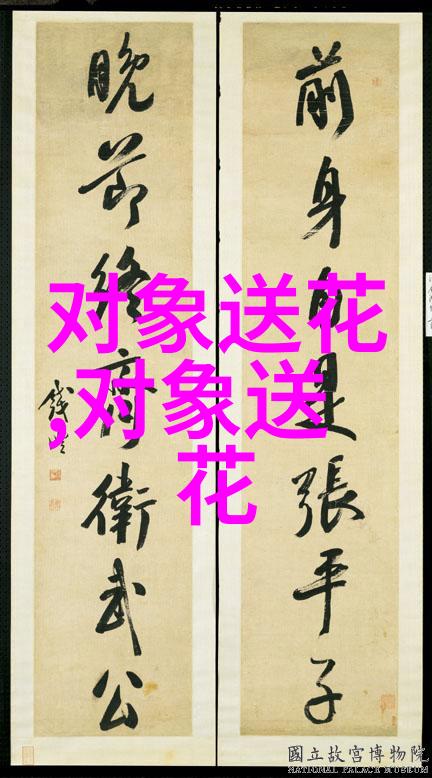 前身自是張平子
晚節終齊衛武公
錢
对象送花
,对象送
花
國立故宮博物院
NATIONAL PALACE MUSEUM